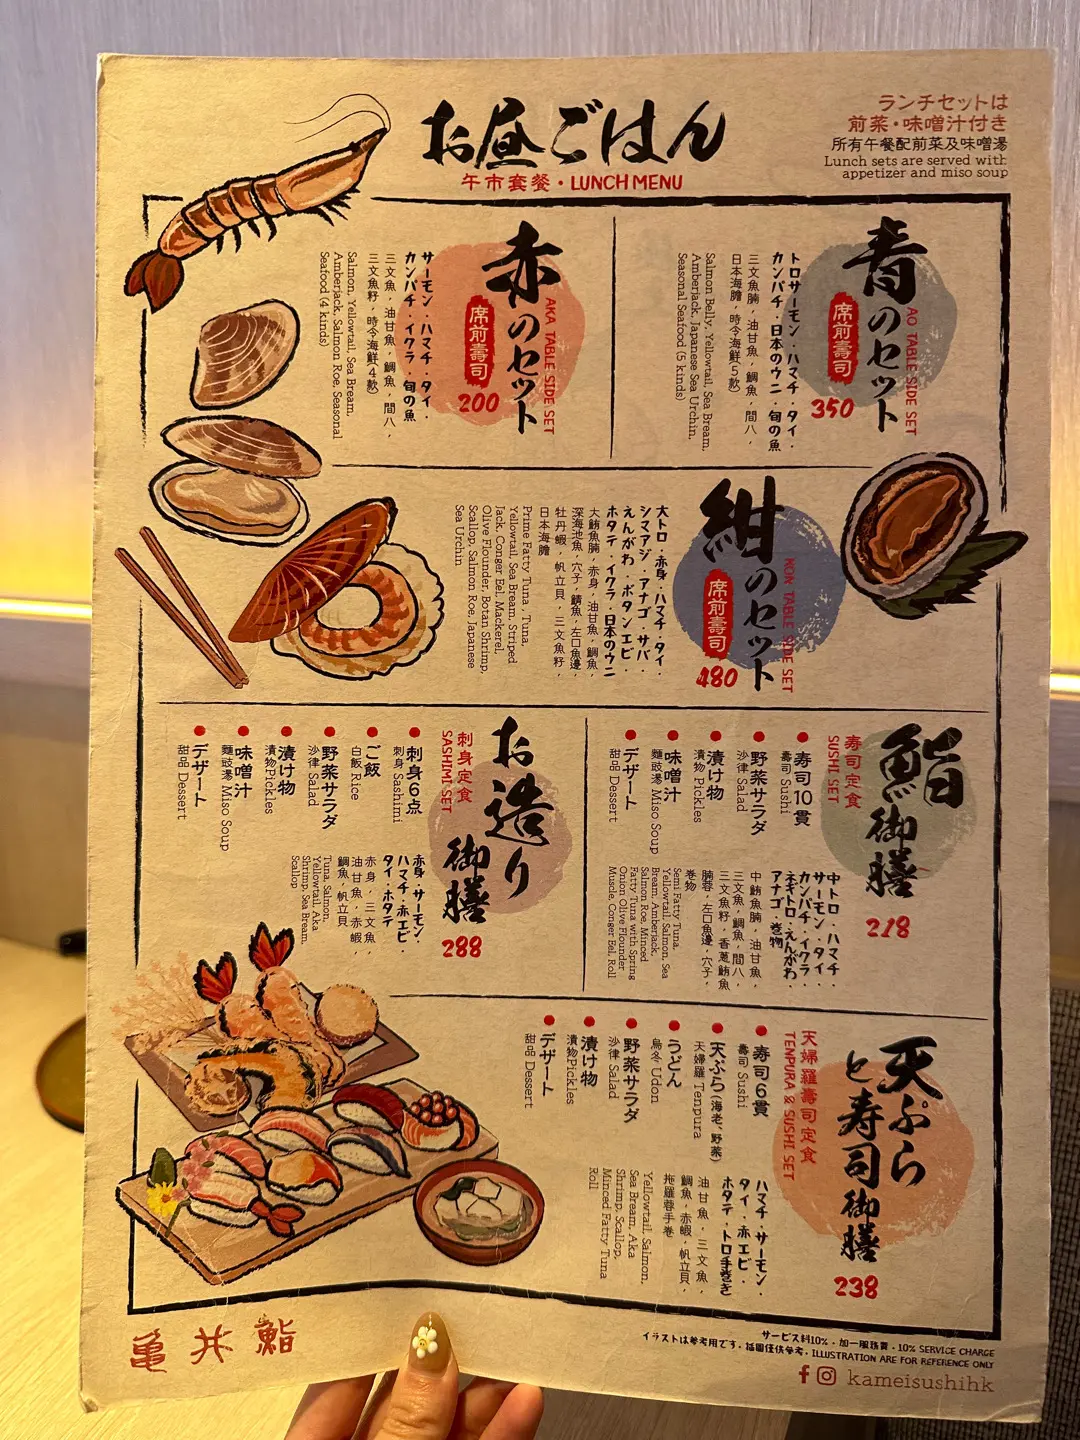 お昼ごはん
午市套餐・LUNCH MENU
ランチセットは
前菜・味噌汁付き
所有午餐配前菜及味噌湯
Lunch sets are served with
appetizer and miso soup
青のセット
AO TABLE SIDE SET
席前壽司
350
トロサーモン・ハマチ・タイ・
カンパチ・日本のウニ・旬の魚
三文魚腩，油甘魚，鯛魚，間八，
日本海膽，時令海鮮(5款)
Salmon Belly, Yellowtail, Sea Bream,
Amberjack, Japanese Sea Urchin,
Seasonal Seafood (5 kinds)
赤のセット
AKA TABLE SIDE SET
席前壽司
200
サーモン・ハマチ・タイ・
カンパチ・イクラ・旬の魚
三文魚，油甘魚，鯛魚，間八，
三文魚籽，時令海鮮(4款)
Salmon, Yellowtail, Sea Bream,
Amberjack, Salmon Roe, Seasonal
Seafood (4 kinds)
紺のセット
KON TABLE SIDE SET
席前壽司
480
大トロ・赤身・ハマチ・タイ・
シマアジ・アナゴ・サバ・
えんがわ・ボタンエビ・
ホタテ・イクラ・日本のウニ
大鮪魚腩，赤身，油甘魚，鯛魚，
深海池魚，穴子，鯖魚，左口魚邊，
牡丹蝦，帆立貝，三文魚籽，
日本海膽
Prime Fatty Tuna, Tuna,
Yellowtail, Sea Bream, Striped
Jack, Conger Eel, Mackerel,
Olive Flounder, Botan Shrimp,
Scallop, Salmon Roe, Japanese
Sea Urchin
鮨御膳
壽司定食
SUSHI SET
218
寿司10貫
壽司 Sushi
野菜サラダ
沙律 Salad
漬け物
漬物 Pickles
味噌汁
麵豉湯 Miso Soup
デザート
甜品 Dessert
中トロ・ハマチ・
サーモン・タイ・
カンパチ・イクラ・
ネギトロ・えんがわ・
アナゴ・巻物
中鮪魚腩，油甘魚，
三文魚，鯛魚，間八，
三文魚籽，香蔥鮪魚
腩蓉，左口魚邊，穴子，
卷物
Semi Fatty Tuna,
Yellowtail, Salmon, Sea
Bream, Amberjack,
Salmon Roe, Minced
Fatty Tuna with Spring
Onion Olive Flounder
Muscle, Conger Eel, Roll
お造り御膳
刺身定食
SASHIMI SET
288
刺身6点
刺身 Sashimi
ご飯
白飯 Rice
野菜サラダ
沙律 Salad
漬け物
漬物Pickles
味噌汁
麵豉湯 Miso Soup
デザート
甜品 Dessert
赤身・サーモン・
ハマチ・赤エビ・
タイ・ホタテ
赤身，三文魚，
油甘魚，赤蝦，
鯛魚，帆立貝
Tuna, Salmon,
Yellowtail, Aka
Shrimp, Sea Bream,
Scallop
天ぷらと寿司御膳
天婦羅壽司定食
TENPURA & SUSHI SET
238
寿司6貫
壽司 Sushi
天ぷら(海老、野菜)
天婦羅 Tenpura
うどん
烏冬 Udon
野菜サラダ
沙律 Salad
漬け物
漬物Pickles
デザート
甜品 Dessert
ハマチ・サーモン・
タイ・赤エビ・
ホタテ・トロ手巻き
油甘魚，三文魚，
鯛魚，赤蝦，帆立貝，
拖羅蓉手卷
Yellowtail, Salmon,
Sea Bream, Aka
Shrimp, Scallop,
Minced Fatty Tuna
Roll
亀井鮨
サービス料10%・加一服務費・10% SERVICE CHARGE
イラストは参考用です・插圖僅供參考・ILLUSTRATION ARE FOR REFERENCE ONLY
kameisushihk